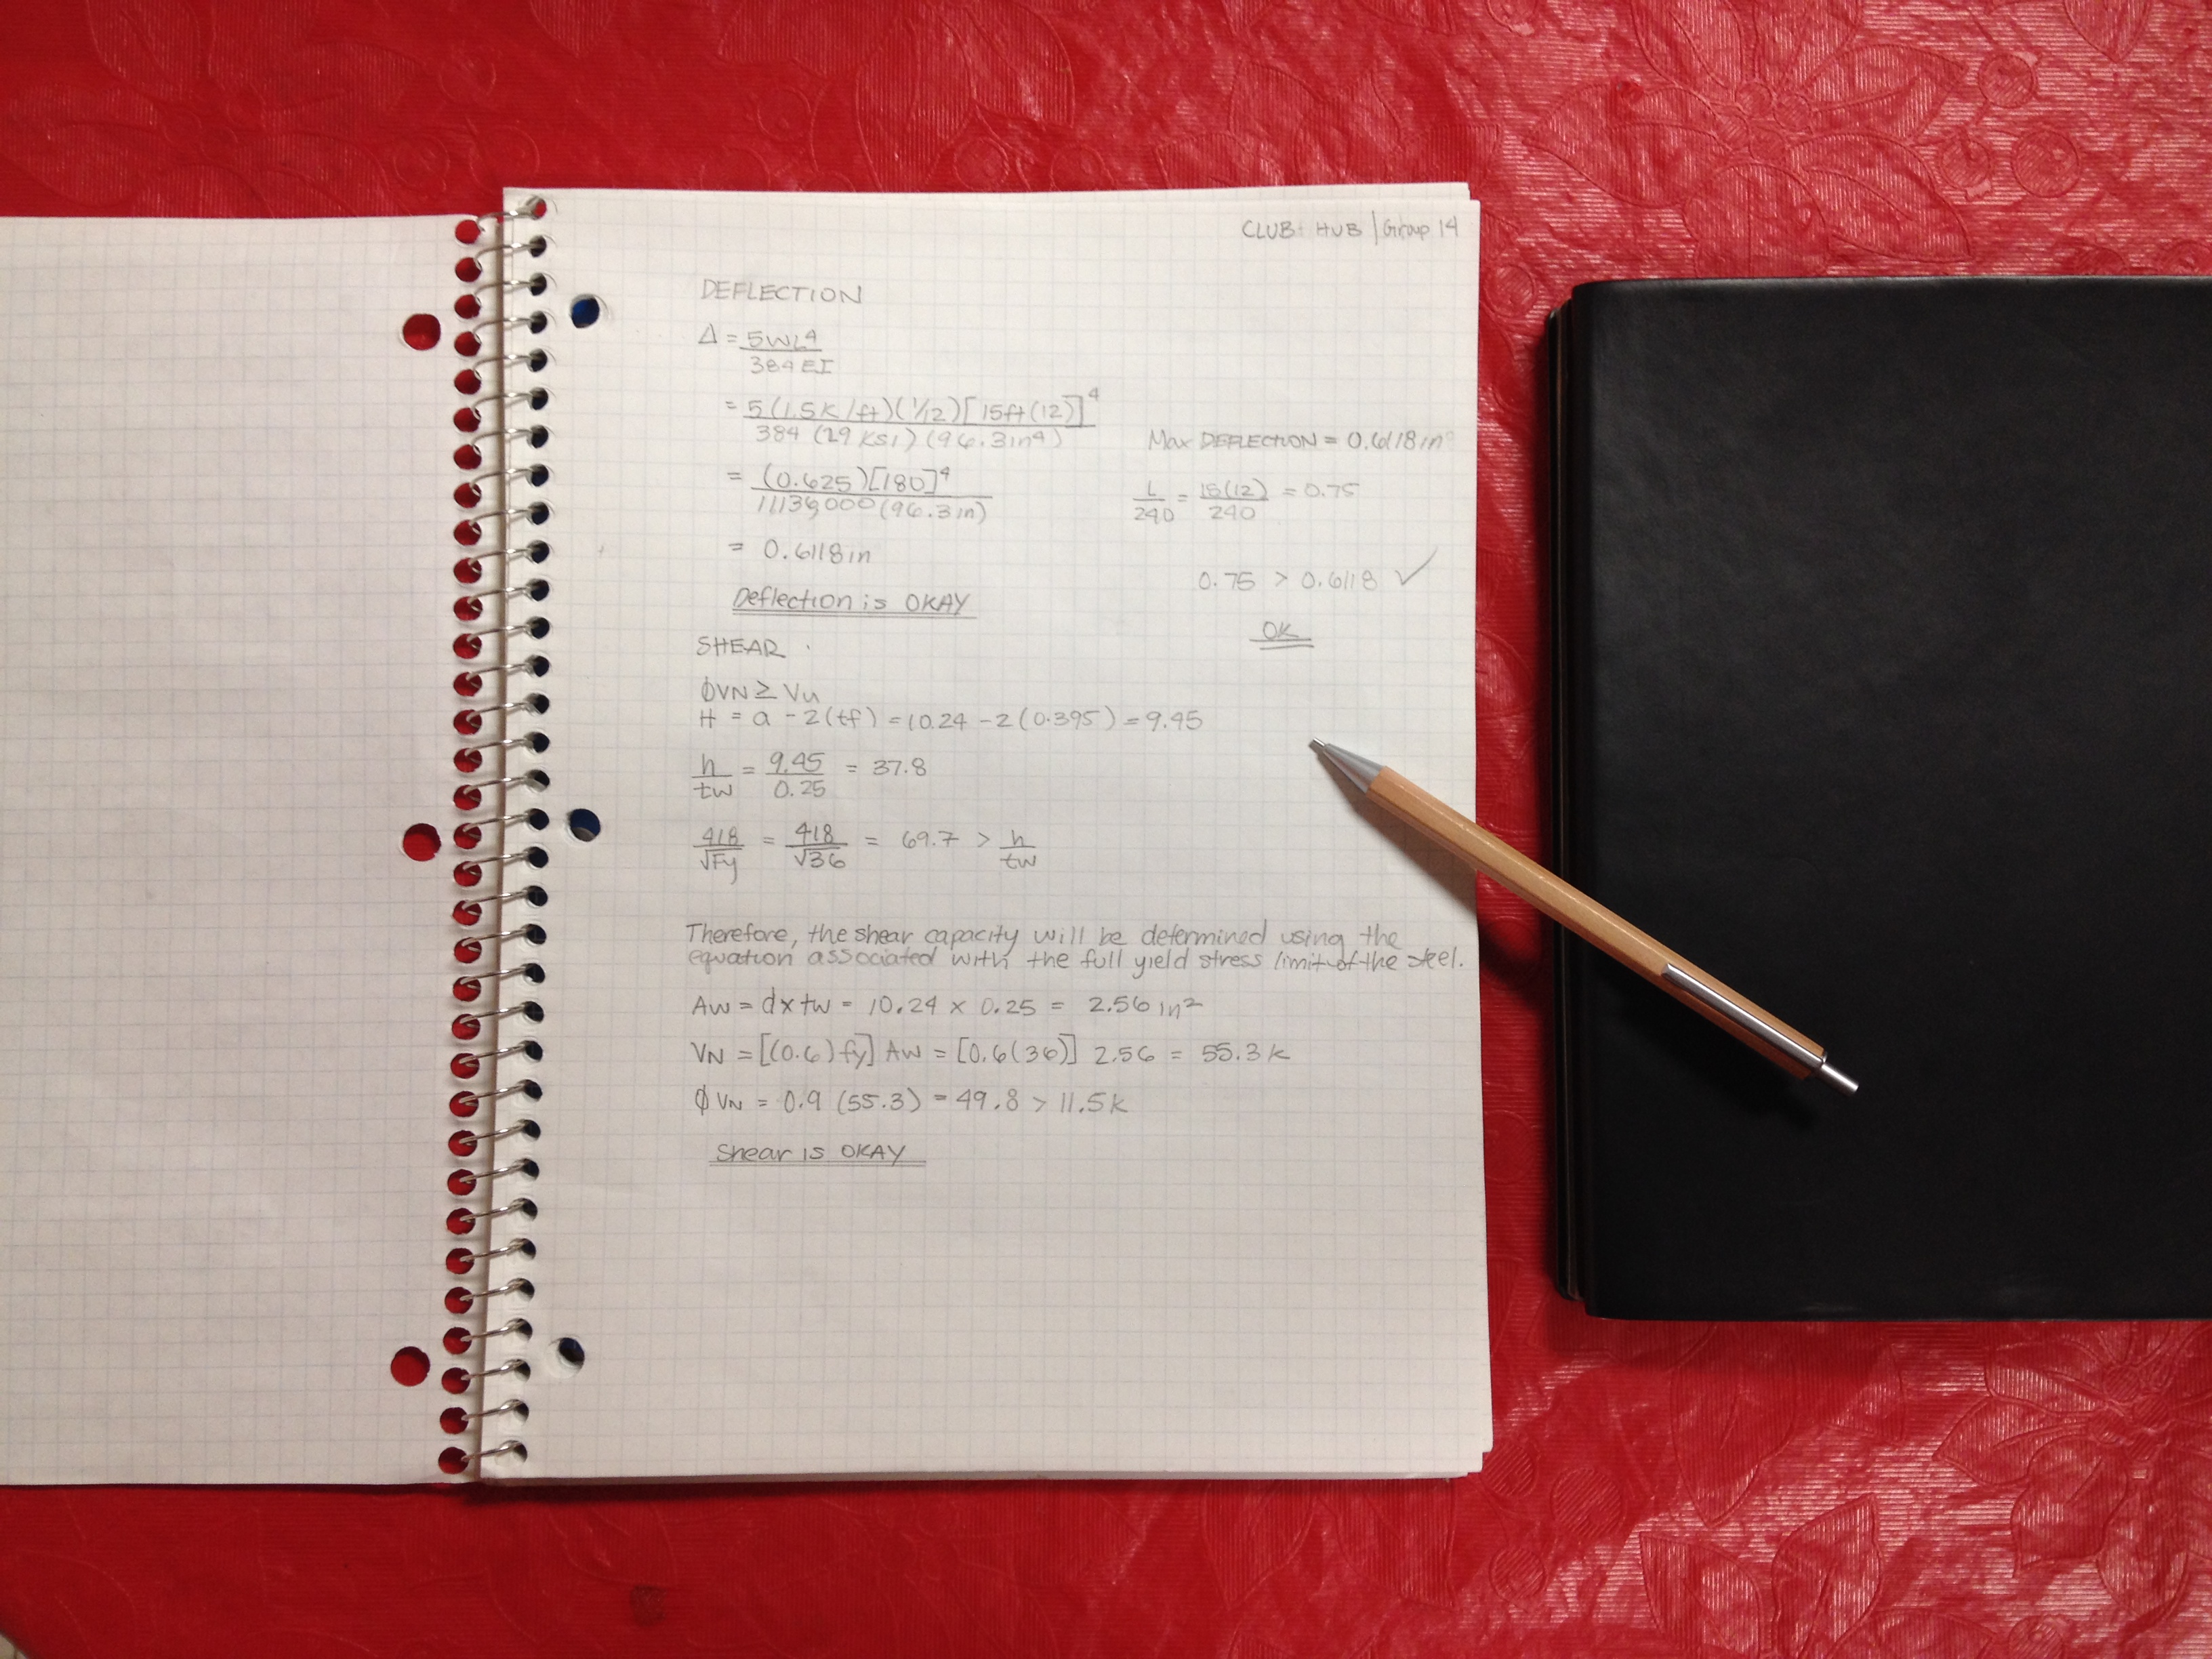 CLUB: HUB | Group 14
DEFLECTION
Δ = 5WL⁴
384EI
= 5(1.5k/ft)(1/12)[15ft(12)]⁴
384 (29 ksi)(96.3in⁴)
Max DEFLECTION = 0.6118in
= (0.625)[180]⁴
11136000(96.3in)
L/240 = 15(12)/240 = 0.75
= 0.6118in
0.75 > 0.6118 ✓
Deflection is OKAY
OK
SHEAR
ϕVN ≥ Vu
H = d - 2(tf) = 10.24 - 2(0.395) = 9.45
h/tw = 9.45/0.25 = 37.8
418/√Fy = 418/√36 = 69.7 > h/tw
Therefore, the shear capacity will be determined using the
equation associated with the full yield stress limit of the steel.
AW = d x tw = 10.24 x 0.25 = 2.56 in²
VN = [(0.6)fy] AW = [0.6(36)] 2.56 = 55.3k
ϕVN = 0.9 (55.3) = 49.8 > 11.5k
Shear is OKAY